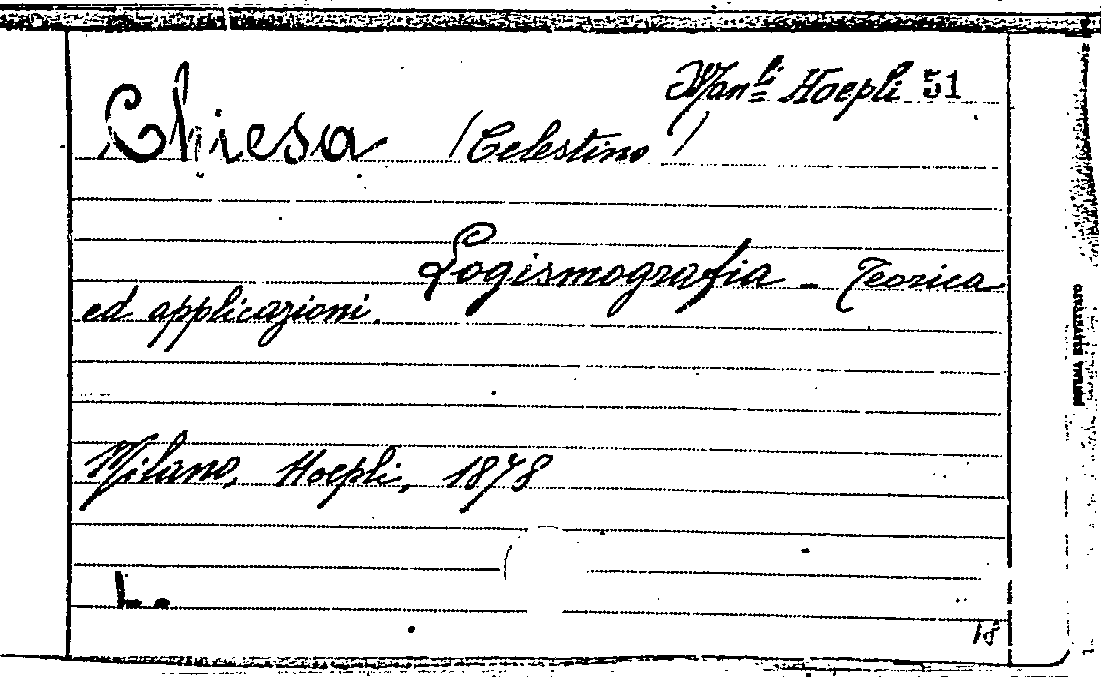 Man.li Hoepli 51
Chiesa (Celestino)
Logismografia - Teorica
ed applicazioni.
Milano, Hoepli, 1878
L.
18